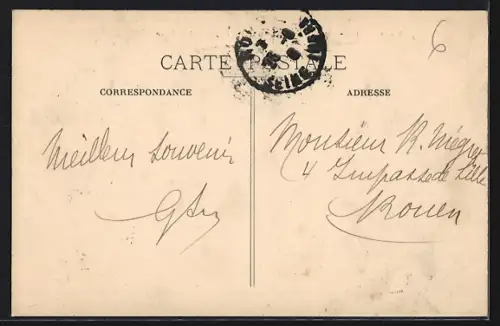 6
CARTE POSTALE
CORRESPONDANCE
ADRESSE
Meilleur souvenir
Monsieur R. Mégret
4 Impasse de Lille
Rouen